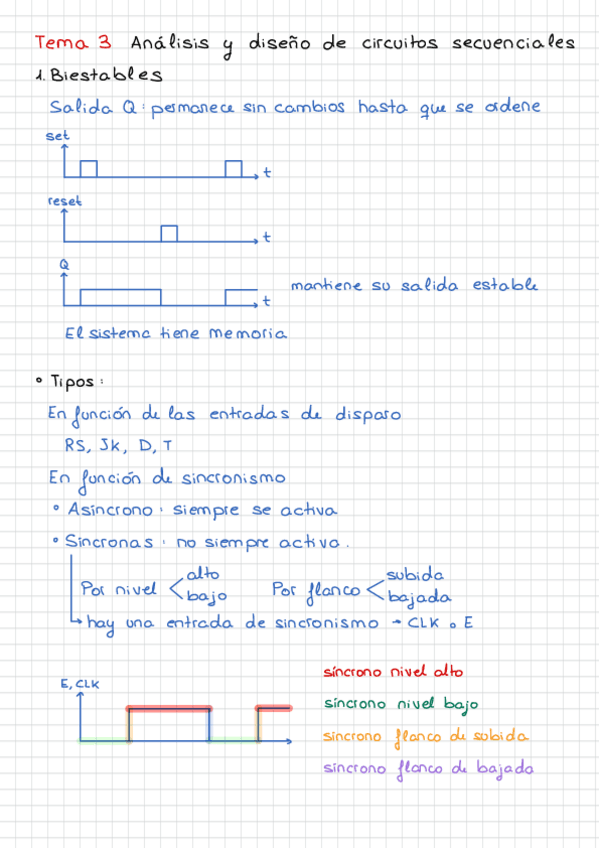 Tema 3 Análisis y diseño de circuitos secuenciales
1. Biestables
Salida Q: permanece sin cambios hasta que se ordene
set
t
reset
t
Q
t
mantiene su salida estable
El sistema tiene memoria
• Tipos:
En función de las entradas de disparo
RS, Jk, D, T
En función de sincronismo
• Asíncrono: siempre se activa
• Síncronas: no siempre activa.
Por nivel alto bajo Por flanco subida bajada
hay una entrada de sincronismo → CLK o E
E, CLK
síncrono nivel alto
síncrono nivel bajo
síncrono flanco de subida
síncrono flanco de bajada